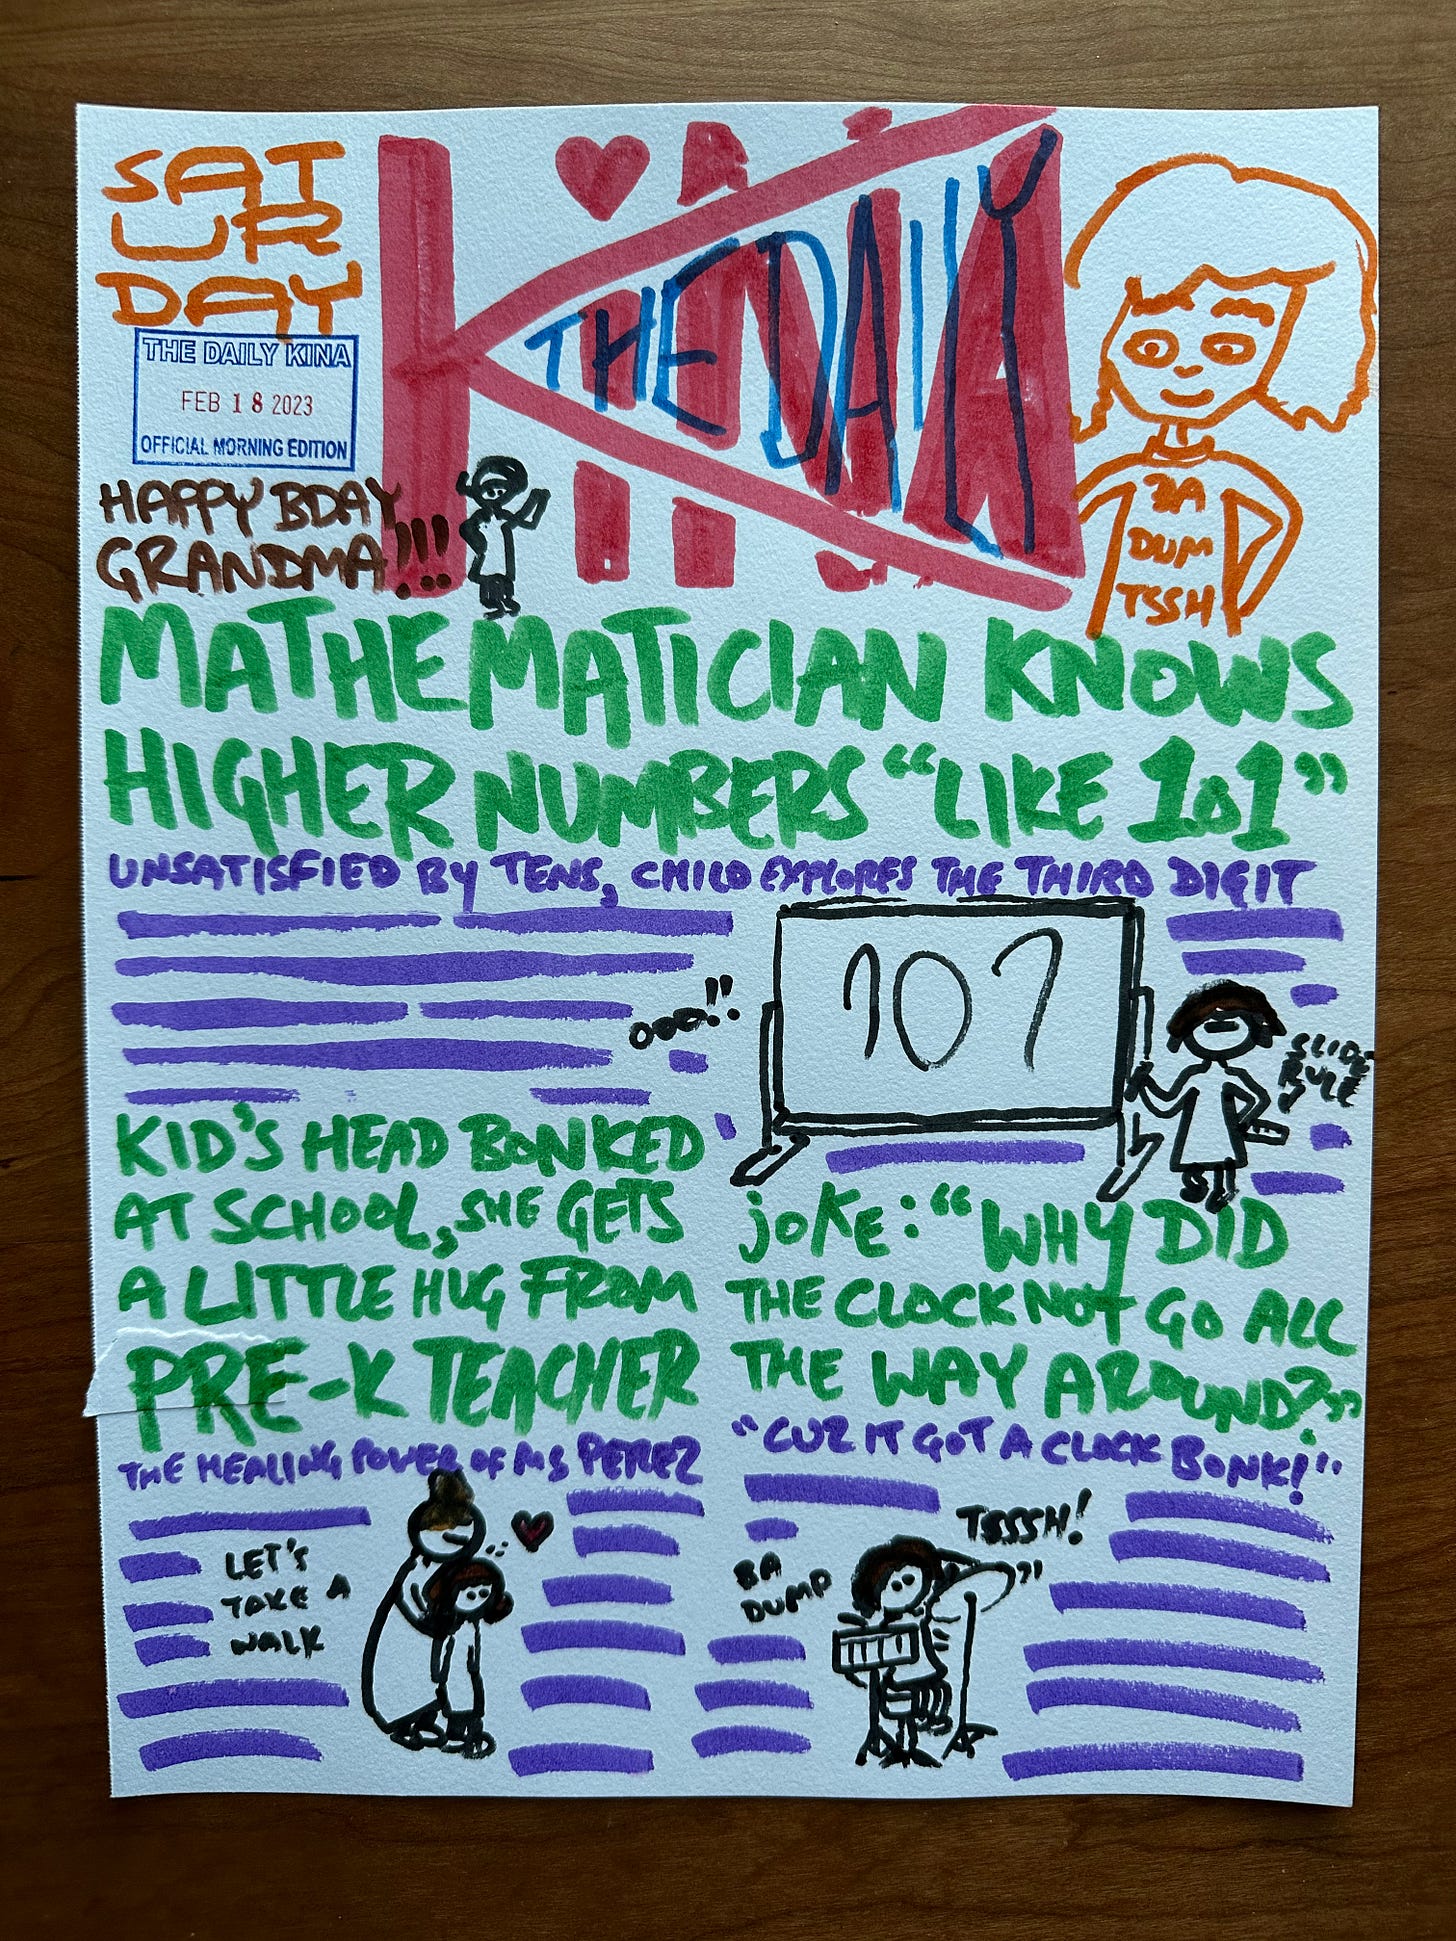 SAT
UR
DAY
THE DAILY KINA
FEB 18 2023
OFFICIAL MORNING EDITION
HAPPY BDAY
GRANDMA!!!
KINA
THE DAILY
BA
DUM
TSSH
MATHEMATICIAN KNOWS
HIGHER NUMBERS “LIKE 101”
UNSATISFIED BY TENS, CHILD EXPLORES THE THIRD DIGIT
OOO!!
101
SLIDE
RULE
KID'S HEAD BONKED
AT SCHOOL, SHE GETS
A LITTLE HUG FROM
PRE-K TEACHER
THE HEALING POWER OF MS PEREZ
LET'S
TAKE A
WALK
JOKE: “WHY DID
THE CLOCK NOT GO ALL
THE WAY AROUND?”
“CUZ IT GOT A CLOCK BONK!”
BA
DUMP
TSSSH!